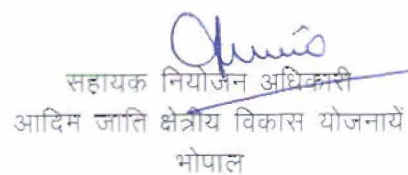 सहायक नियोजन अधिकारी
आदिम जाति क्षेत्रीय विकास योजनायें
भोपाल